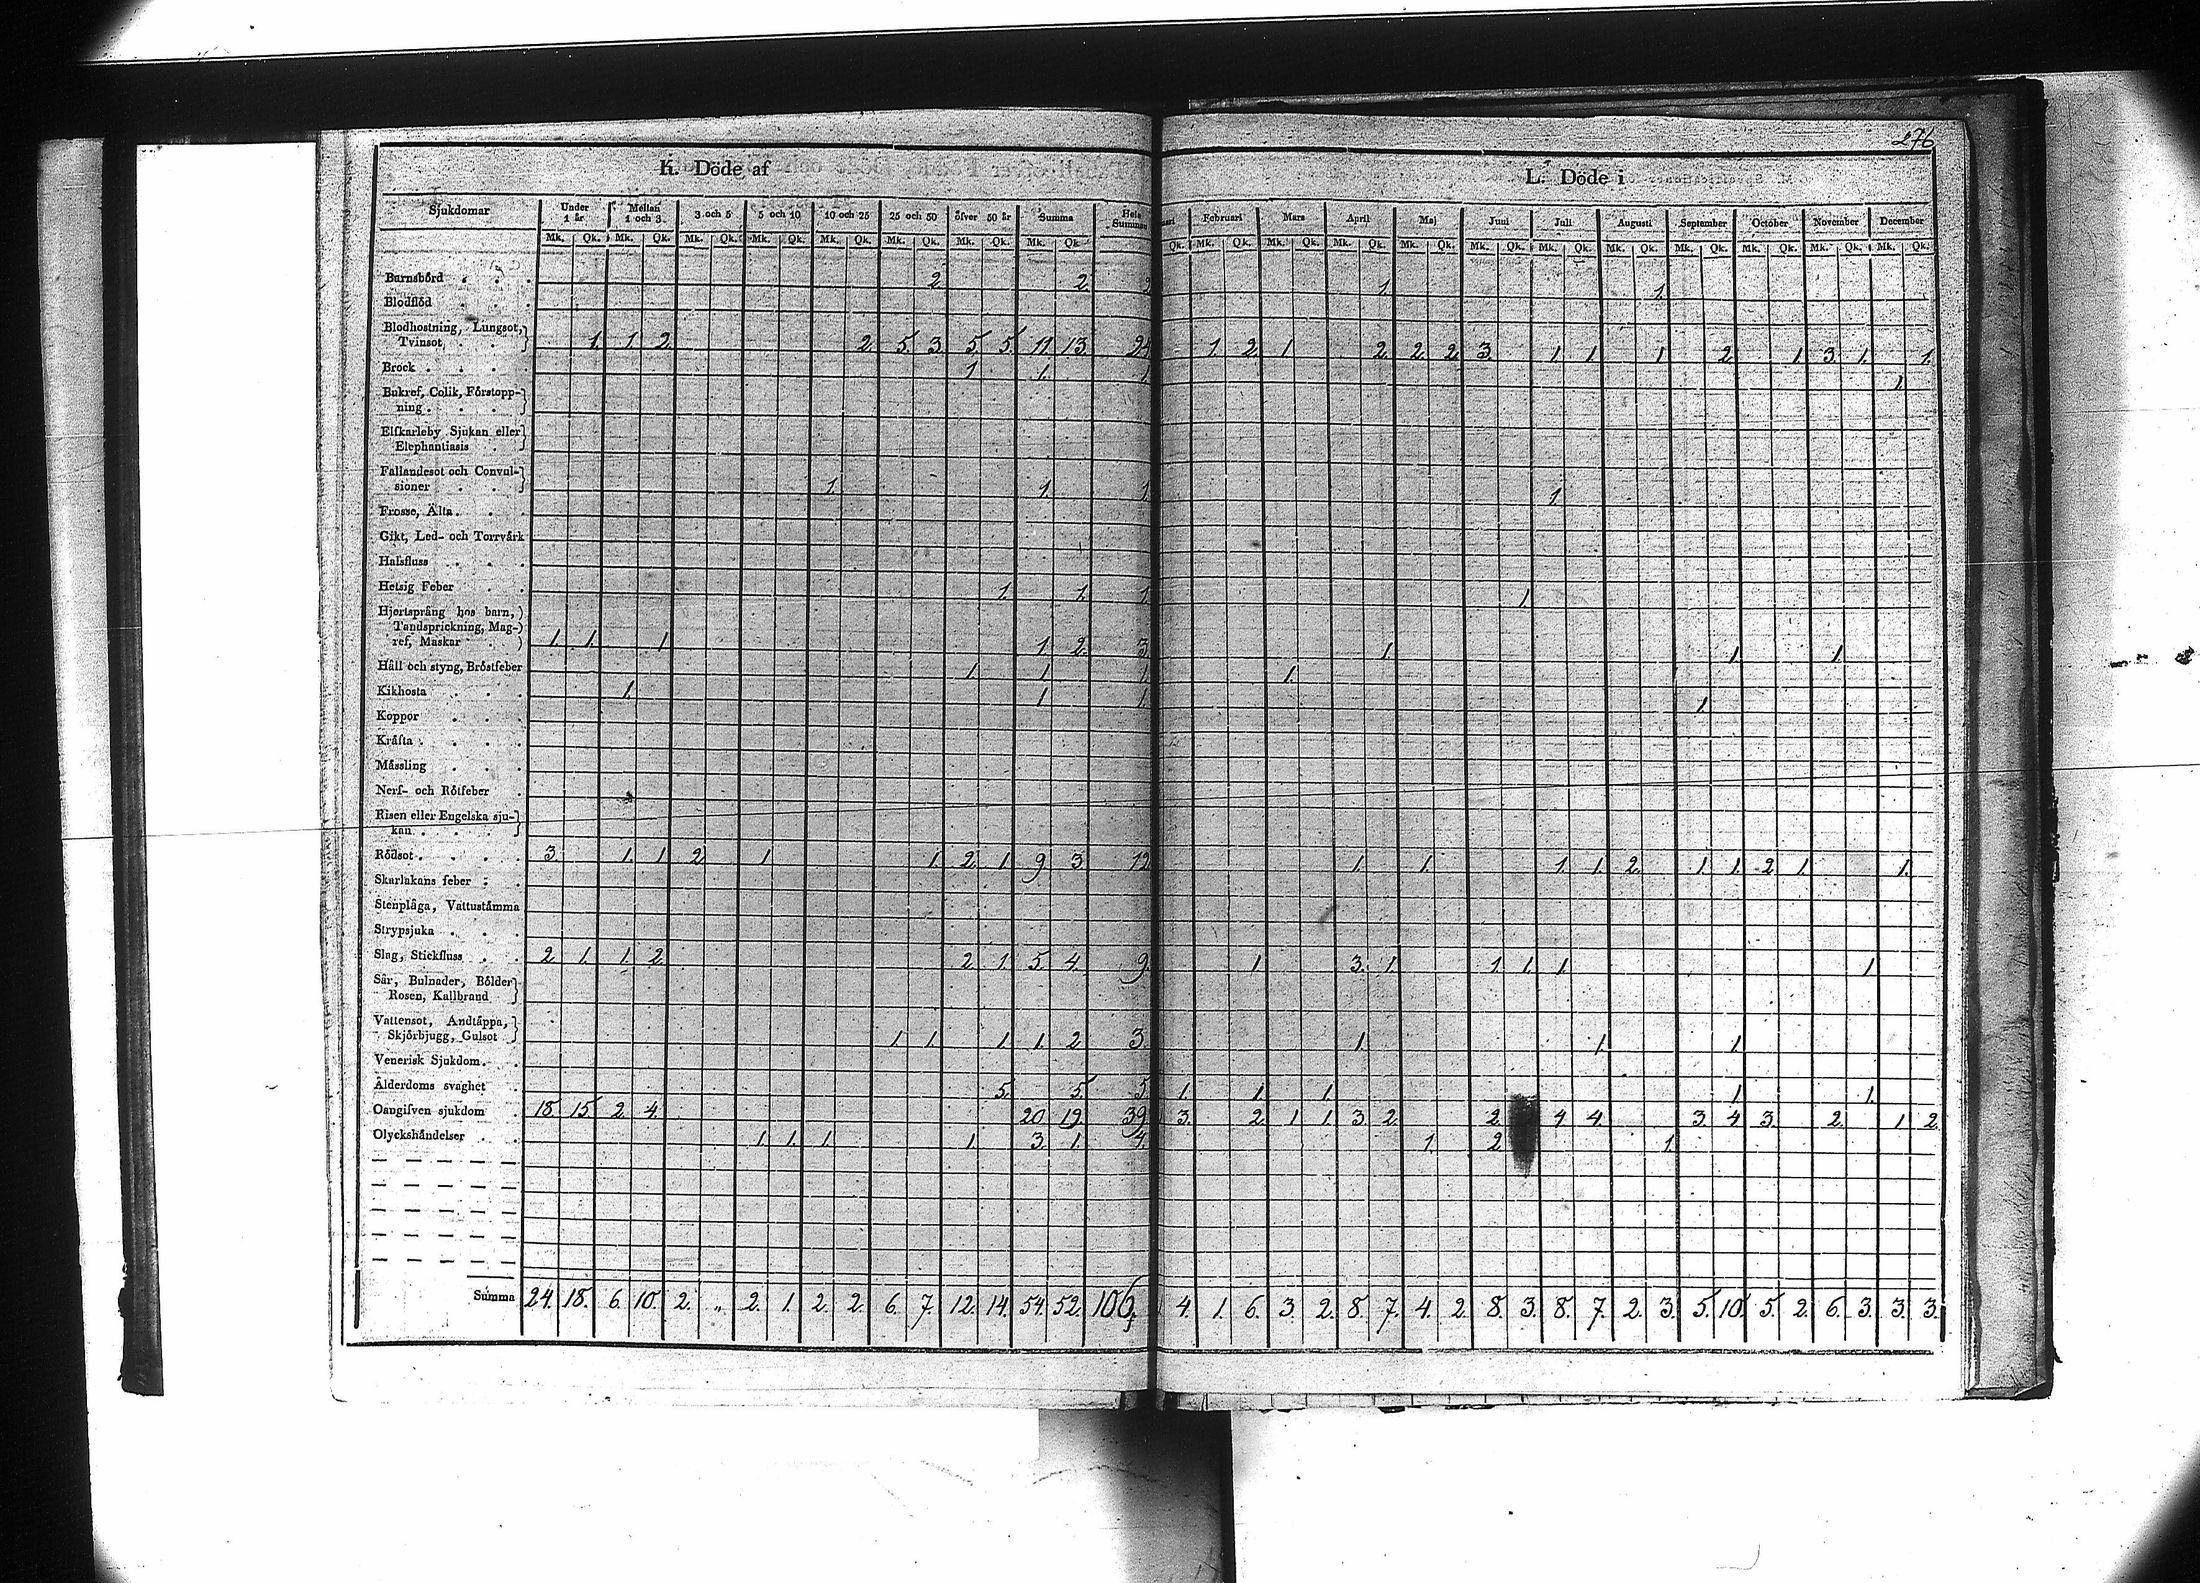 276
K. Döde af
L. Döde i
Sjukdomar Under 1 år Mellan 1 och 3 3 och 5 5 och 10 10 och 25 25 och 50 öfver 50 år Summa Hela Summan
Februari Mars April Maj Juni Juli Augusti September October November December
Mk. Qk. Mk. Qk. Mk. Qk. Mk. Qk. Mk. Qk. Mk. Qk. Mk. Qk. Mk. Qk.
Qk. Mk. Qk. Mk. Qk. Mk. Qk. Mk. Qk. Mk. Qk. Mk. Qk. Mk. Qk. Mk. Qk. Mk. Qk. Mk. Qk. Mk. Qk.
Barnsbörd 2 2 2 1 1
Blodflöd
Blodhostning, Lungsot,
Tvinsot 1. 1. 2. 2. 5. 3. 5. 5. 11 13. 24 1. 2. 1 2. 2. 2. 3. 1 1 1 2. 1 3. 1. 1.
Brock 1 1. 1. 1.
Bukref, Colik, Förstopp-
ning
Elfkarleby Sjukan eller
Elephantiasis
Fallandesot och Convul-
sioner 1. 1. 1. 1
Frosse, Älta
Gikt, Led- och Torrvärk
Halsfluss
Hetsig Feber 1. 1. 1. 1
Hjertsprång hos barn,
Tandsprickning, Mag-
ref, Maskar 1. 1. 1 1 2. 3. 1 1 1
Håll och styng, Bröstfeber 1 1 1. 1.
Kikhosta 1. 1 1. 1
Koppor
Kräfta
Mässling
Nerf- och Rötfeber
Risen eller Engelska sju-
kan
Rödsot 3. 1. 1 2. 1 1. 2. 1. 9 3. 12 1. 1. 1. 1. 2. 1 1. 2. 1 1.
Skarlakans feber
Stenplåga, Vattustämma
Strypsjuka
Slag, Stickfluss 2. 1. 1. 2. 2. 1. 5. 4. 9. 1 3. 1 1. 1. 1 1
Sår, Bulnader, Bölder
Rosen, Kallbrand
Vattensot, Andtäppa,
Skjörbjugg, Gulsot 1. 1 1. 1. 2. 3. 1. 1. 1
Venerisk Sjukdom
Ålderdoms svaghet 5. 5. 5. 1 1 1 1 1.
Oangifven sjukdom 18. 15. 2. 4. 20 19. 39. 3. 2. 1 1. 3. 2. 2. 4 4. 3. 4 3. 2. 1 2.
Olyckshändelser 1. 1. 1 1. 3. 1. 4. 1. 2. 1.
Summa 24. 18. 6. 10. 2. „ 2. 1. 2. 2. 6. 7. 12. 14. 54. 52. 106. 4. 1. 6. 3. 2. 8. 7. 4. 2. 8. 3. 8. 7. 2. 3. 5. 10. 5. 2. 6. 3. 3. 3.